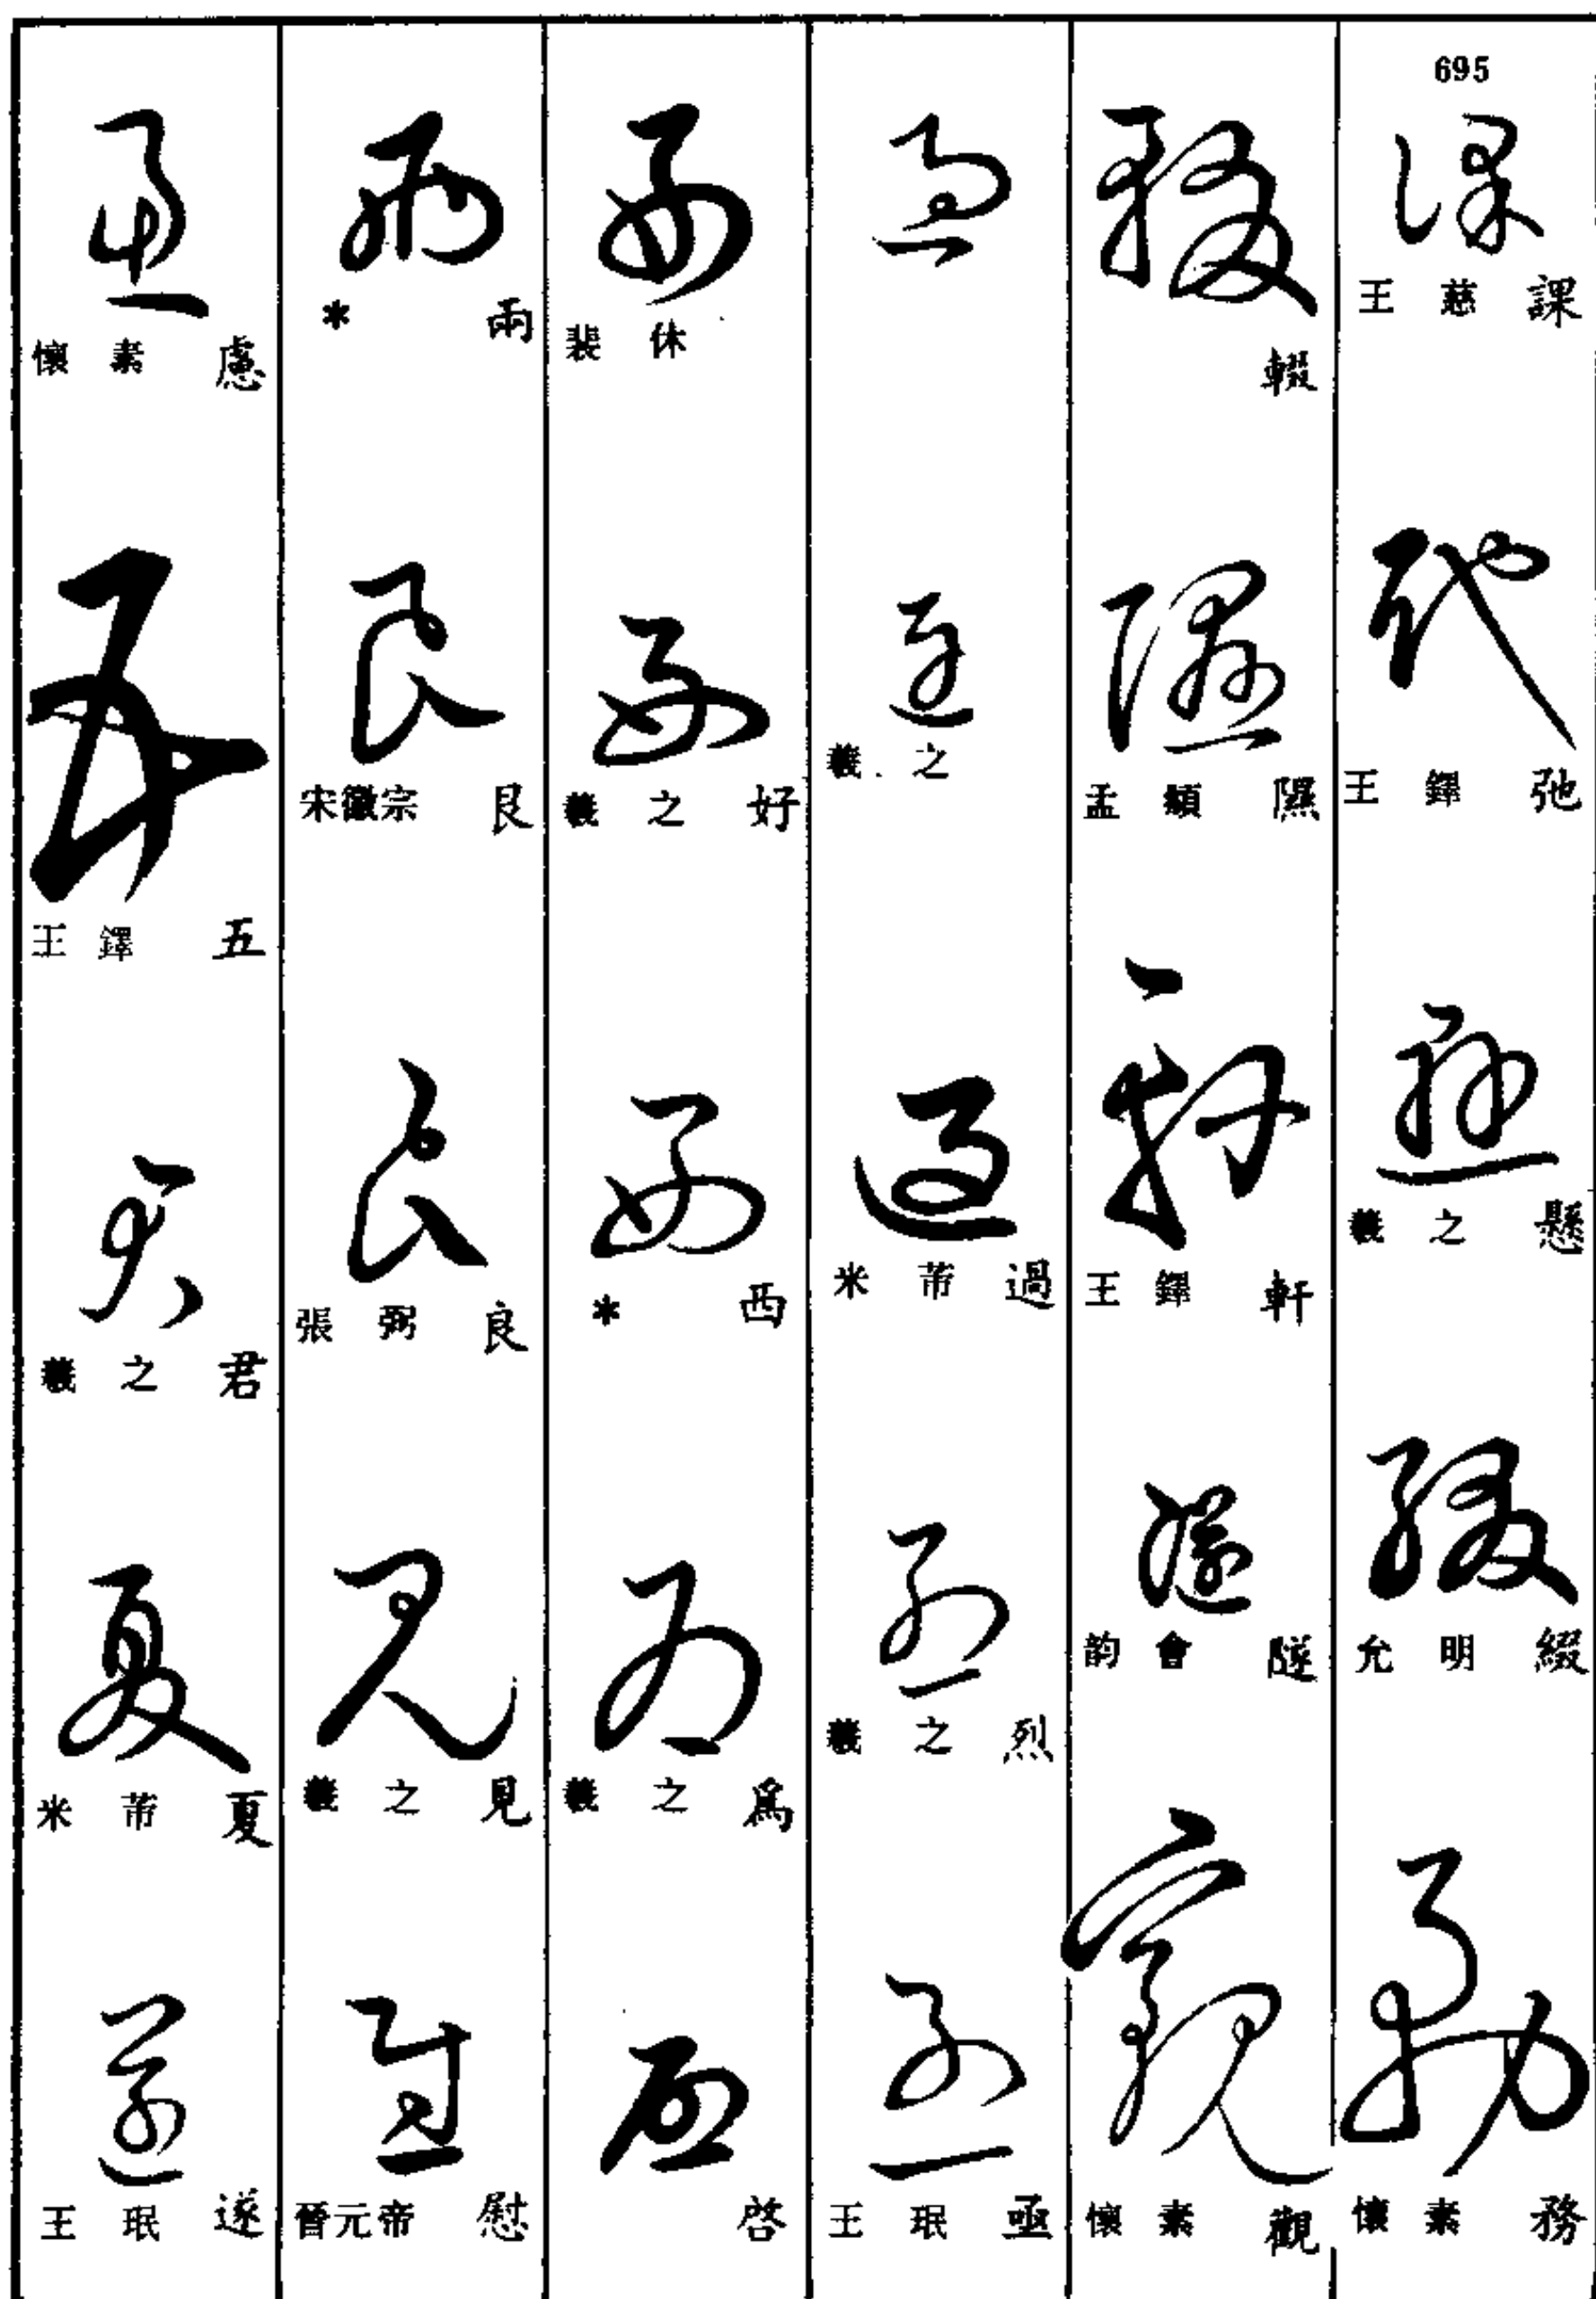 695
王慈 課
王鐸 弛
羲之 懸
允明 綴
懷素 務
輟
孟頫 隰
王鐸 軒
韵會 隧
懷素 觀
羲之
米芾 過
羲之 烈
王珉 亟
裴休
羲之 好
* 西
羲之 爲
啓
* 兩
宋徽宗 艮
張弼 良
羲之 見
晉元帝 慰
懷素 慮
王鐸 五
羲之 君
米芾 夏
王珉 遂